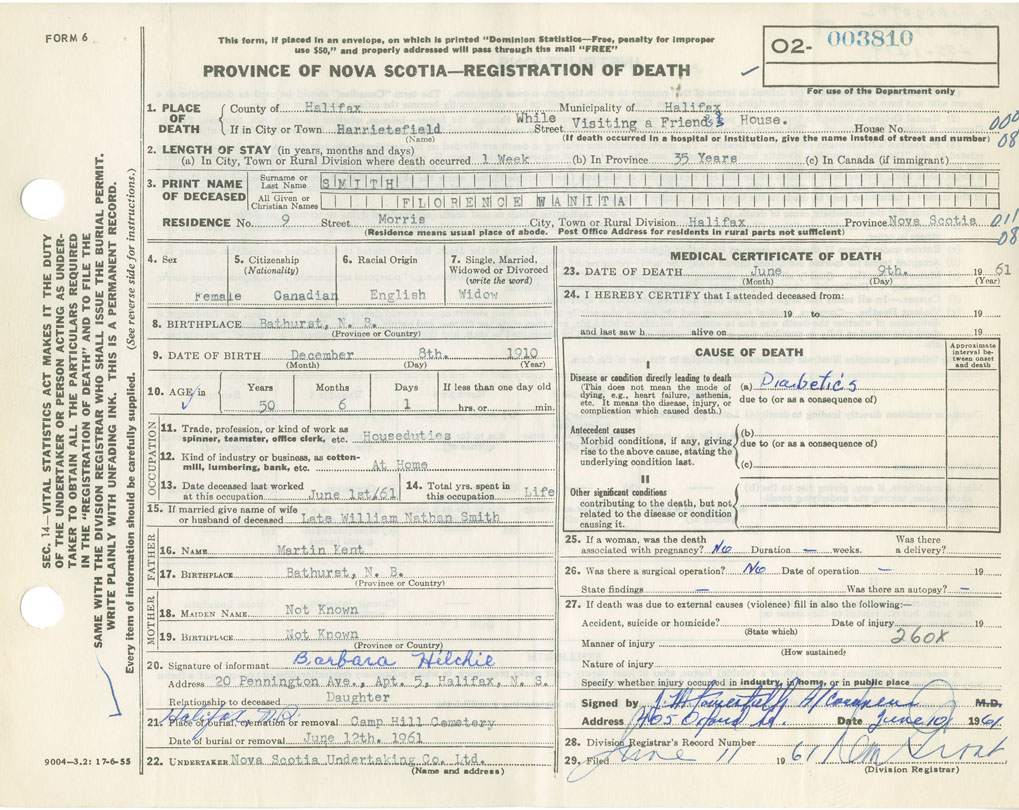 FORM 6
This form, if placed in an envelope, on which is printed "Dominion Statistics—Free, penalty for improper
use $50," and properly addressed will pass through the mail "FREE"
O2- 003810
PROVINCE OF NOVA SCOTIA—REGISTRATION OF DEATH
For use of the Department only
1. PLACE OF DEATH
County of Halifax Municipality of Halifax
If in City or Town Harrietsfield Street While Visiting a Friend's House. House No.
(Name) (If death occurred in a hospital or institution, give the name instead of street and number)
000
08
2. LENGTH OF STAY (in years, months and days)
(a) In City, Town or Rural Division where death occurred 1 Week (b) In Province 35 Years (c) In Canada (if immigrant)
3. PRINT NAME OF DECEASED
Surname or Last Name SMITH
All Given or Christian Names FLORENCE WANITA
RESIDENCE No. 9 Street Morris City, Town or Rural Division Halifax Province Nova Scotia
(Residence means usual place of abode. Post Office Address for residents in rural parts not sufficient)
011
08
4. Sex
Female
5. Citizenship
(Nationality)
Canadian
6. Racial Origin
English
7. Single, Married,
Widowed or Divorced
(write the word)
Widow
8. BIRTHPLACE Bathurst, N. B.
(Province or Country)
9. DATE OF BIRTH December 8th. 1910
(Month) (Day) (Year)
10. AGE in
Years Months Days If less than one day old
50 6 1 hrs. or min.
OCCUPATION
11. Trade, profession, or kind of work as
spinner, teamster, office clerk, etc. Houseduties
12. Kind of industry or business, as cotton-
mill, lumbering, bank, etc. At Home
13. Date deceased last worked
at this occupation June 1st/61
14. Total yrs. spent in
this occupation Life
15. If married give name of wife
or husband of deceased Late William Nathan Smith
FATHER
16. NAME Martin Kent
17. BIRTHPLACE Bathurst, N. B.
(Province or Country)
MOTHER
18. MAIDEN NAME Not Known
19. BIRTHPLACE Not Known
(Province or Country)
20. Signature of informant Barbara Hilchie
Address 20 Pennington Ave., Apt. 5, Halifax, N. S.
Relationship to deceased Daughter
Halifax N.S.
21. Place of burial, cremation or removal Camp Hill Cemetery
Date of burial or removal June 12th. 1961
22. UNDERTAKER Nova Scotia Undertaking Co. Ltd.
(Name and address)
MEDICAL CERTIFICATE OF DEATH
23. DATE OF DEATH June 9th. 1961
(Month) (Day) (Year)
24. I HEREBY CERTIFY that I attended deceased from:
19 to 19
and last saw h alive on 19
CAUSE OF DEATH
Approximate
interval be-
tween onset
and death
I
Disease or condition directly leading to death
(This does not mean the mode of
dying, e.g., heart failure, asthenia,
etc. It means the disease, injury, or
complication which caused death.)
(a) Diabetic's
due to (or as a consequence of)
Antecedent causes
Morbid conditions, if any, giving
rise to the above cause, stating the
underlying condition last.
(b)
due to (or as a consequence of)
(c)
II
Other significant conditions
contributing to the death, but not
related to the disease or condition
causing it.
25. If a woman, was the death
associated with pregnancy? No Duration — weeks. Was there
a delivery?
26. Was there a surgical operation? No Date of operation — 19
State findings — Was there an autopsy? —
27. If death was due to external causes (violence) fill in also the following:—
Accident, suicide or homicide? Date of injury 19
(State which)
260X
Manner of injury
(How sustained)
Nature of injury
Specify whether injury occurred in industry, in home, or in public place
Signed by A/Coroner M.D.
Address 405 Oxford St. Date June 10 1961
28. Division Registrar's Record Number
29. Filed June 11 1961
(Division Registrar)
SEC. 14—VITAL STATISTICS ACT MAKES IT THE DUTY
OF THE UNDERTAKER OR PERSON ACTING AS UNDER-
TAKER TO OBTAIN ALL THE PARTICULARS REQUIRED
IN THE "REGISTRATION OF DEATH" AND TO FILE THE
SAME WITH THE DIVISION REGISTRAR WHO SHALL ISSUE THE BURIAL PERMIT.
WRITE PLAINLY WITH UNFADING INK. THIS IS A PERMANENT RECORD.
Every item of information should be carefully supplied. (See reverse side for instructions.)
9004—3.2: 17-6-55